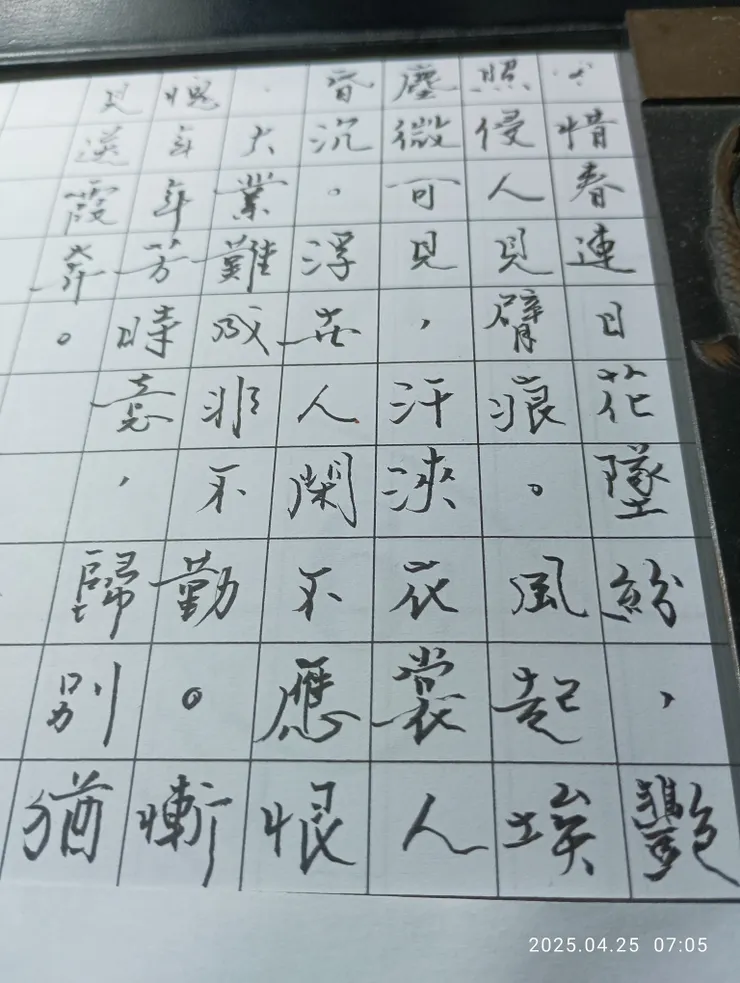 惜春連日花墜紛，艷
照侵人見臂痕。風起埃
塵微可見，汗浹衣裳人
昏沉。浮世人閑不應恨
，大業難成非不勤。慚
愧年年芳時意，歸別猶
見送霞奔。
2025.04.25 07:05